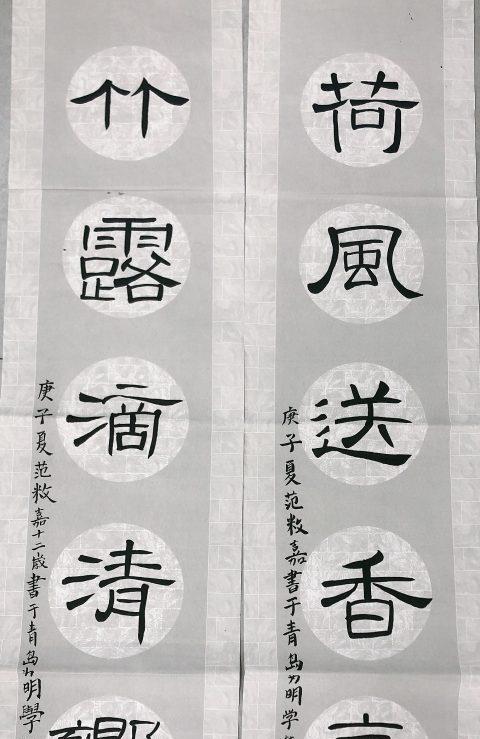 荷風送香
庚子夏范敉嘉書于青島力明学
竹露滴清
庚子夏范敉嘉十二歲書于青島力明學